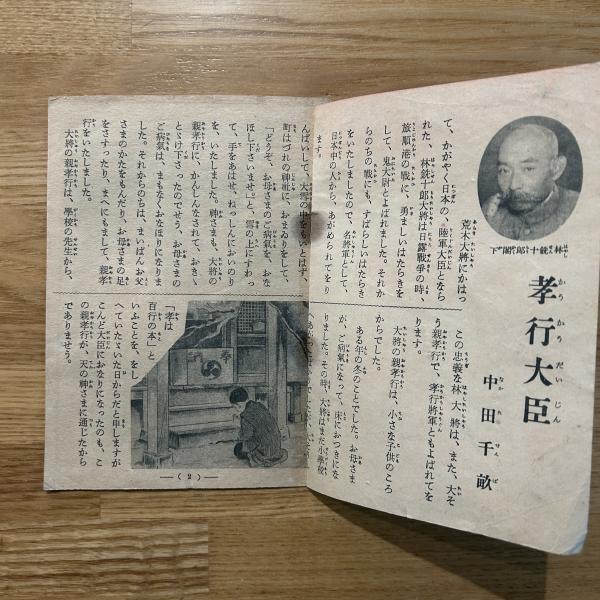 林銑十郎閣下
孝行大臣
中田千畝
荒木大將にかはつ
て、かがやく日本の、陸軍大臣となら
れた、林銑十郎大將は日露戰爭の時、
旅順港の戰に、勇ましいはたらきを
して、鬼大尉とよばれました。それか
らのちの戰にも、すばらしいはたらき
をいたしましたので、名將軍として、
日本中の人から、あがめられてをり
ます。
この忠義な林大將は、また、大そ
う親孝行で、孝行將軍ともよばれてを
ります。
大將の親孝行は、小さな子供のころ
からでした。
ある年の冬のことでした。お母さま
が、ご病氣になつて、床におつきにな
りました。その時、大將はまだ小學校
んぱいして、大雪の中をもいとはず、
町はづれの神社に、おまゐりをして、
「どうぞ、お母さまのご病氣を、おな
ほし下さいませ。」と、雪の上にすわつ
て、手をあはせ、ねつしんにおいのり
を、いたしました。神さまも、大將の
親孝行に、かんしんなされて、おきゝ
とゞけ下さつたのでせう、お母さまの
ご病氣は、まもなくおなほりになりま
した。それからのちは、まいばんお父
さまのかたをもんだり、お母さまの足
をさすつたり、まへにもまして、親孝
行をいたしました。
大將の親孝行は、學校の先生から、
「孝は
百行の本」と
いふことを、をし
へていたゞいた日からだと申しますが
こんど大臣におなりになつたのも、こ
の親孝行が、天の神さまに通じたから
でありませう。
奉
—(2)—